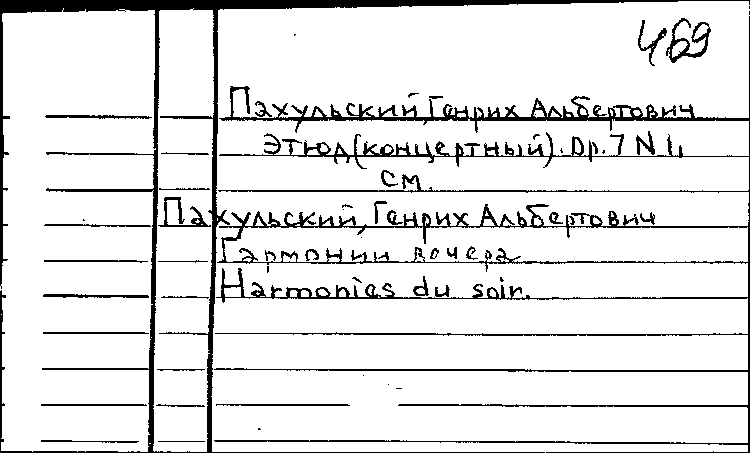 469
Пахульский, Генрих Альбертович
Этюд (концертный). Op. 7 N 1,
см.
Пахульский, Генрих Альбертович
Гармонии вечера
Harmonies du soir.